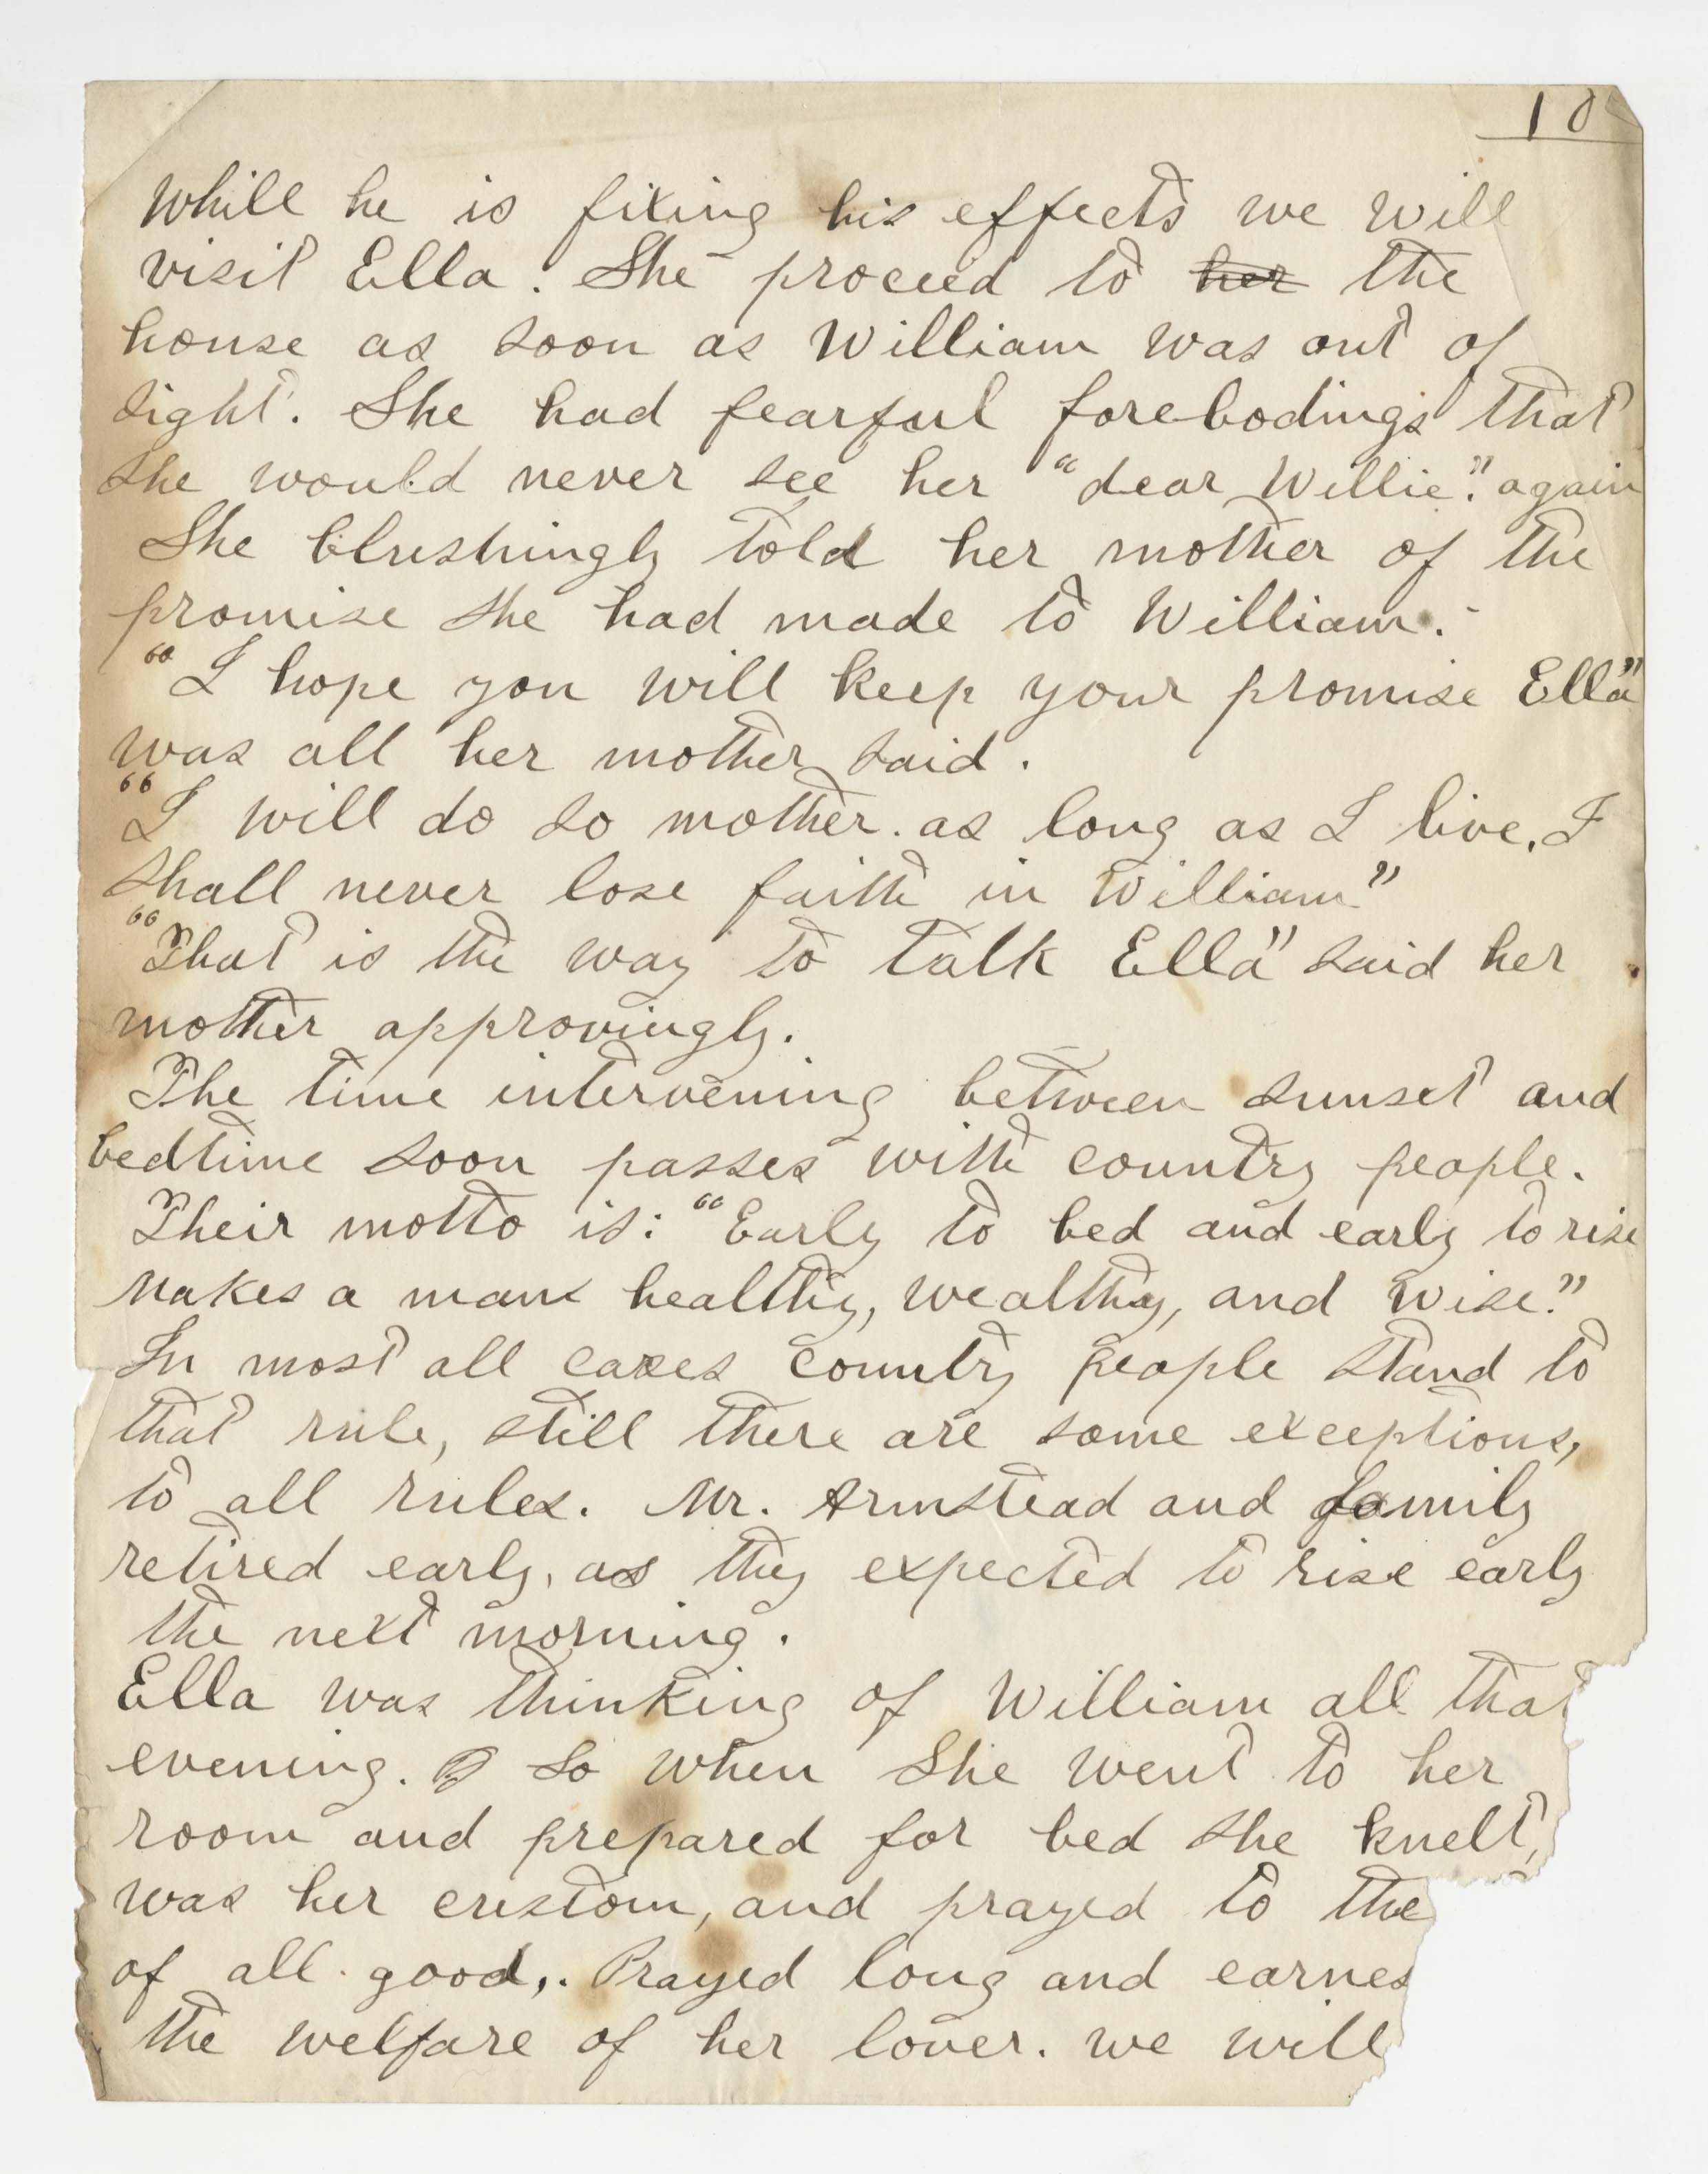 10
While he is fixing his effects we will
visit Ella. She proceed to her the
house as soon as William was out of
sight. She had fearful forebodings that
she would never see her "dear Willie." again
She blushingly told her mother of the
promise she had made to William.
"I hope you will keep your promise Ella"
was all her mother said.
"I will do so mother. as long as I live, I
shall never lose faith in William"
"That is the way to talk Ella" said her
mother approvingly.
The time intervening between sunset and
bedtime soon passes with country people.
Their motto is: "Early to bed and early to rise
Makes a man healthy, wealthy, and wise."
In most all cases country people stand to
that rule, still there are some exceptions,
to all rules. Mr. Armstead and family
retired early, as they expected to rise early
the next morning.
Ella was thinking of William all that
evening. So when she went to her
room and prepared for bed she knelt,
was her custom, and prayed to the
of all good,. Prayed long and earnes
the welfare of her lover. we will